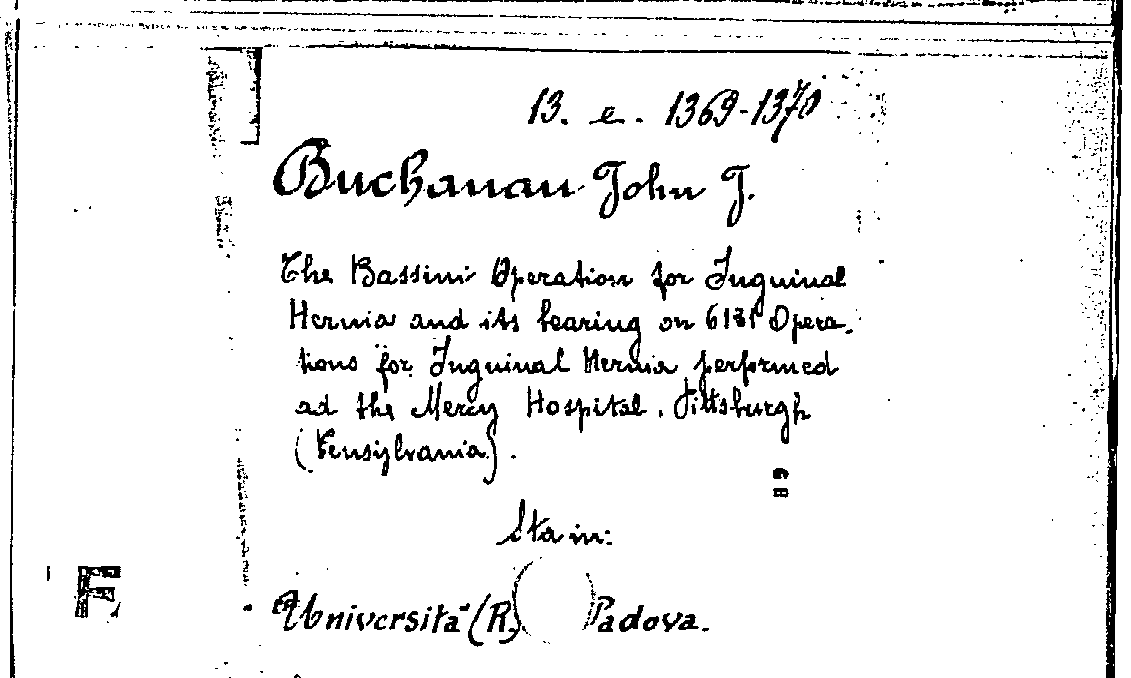 13. e. 1369-1370
Buchanan John J.
The Bassini Operation for Inguinal
Hernia and its bearing on 6131 Opera-
tions for Inguinal Hernia performed
ad the Mercy Hospital. Pittsburgh
(Pensylvania).
Sta in:
Università (R.) Padova.
F